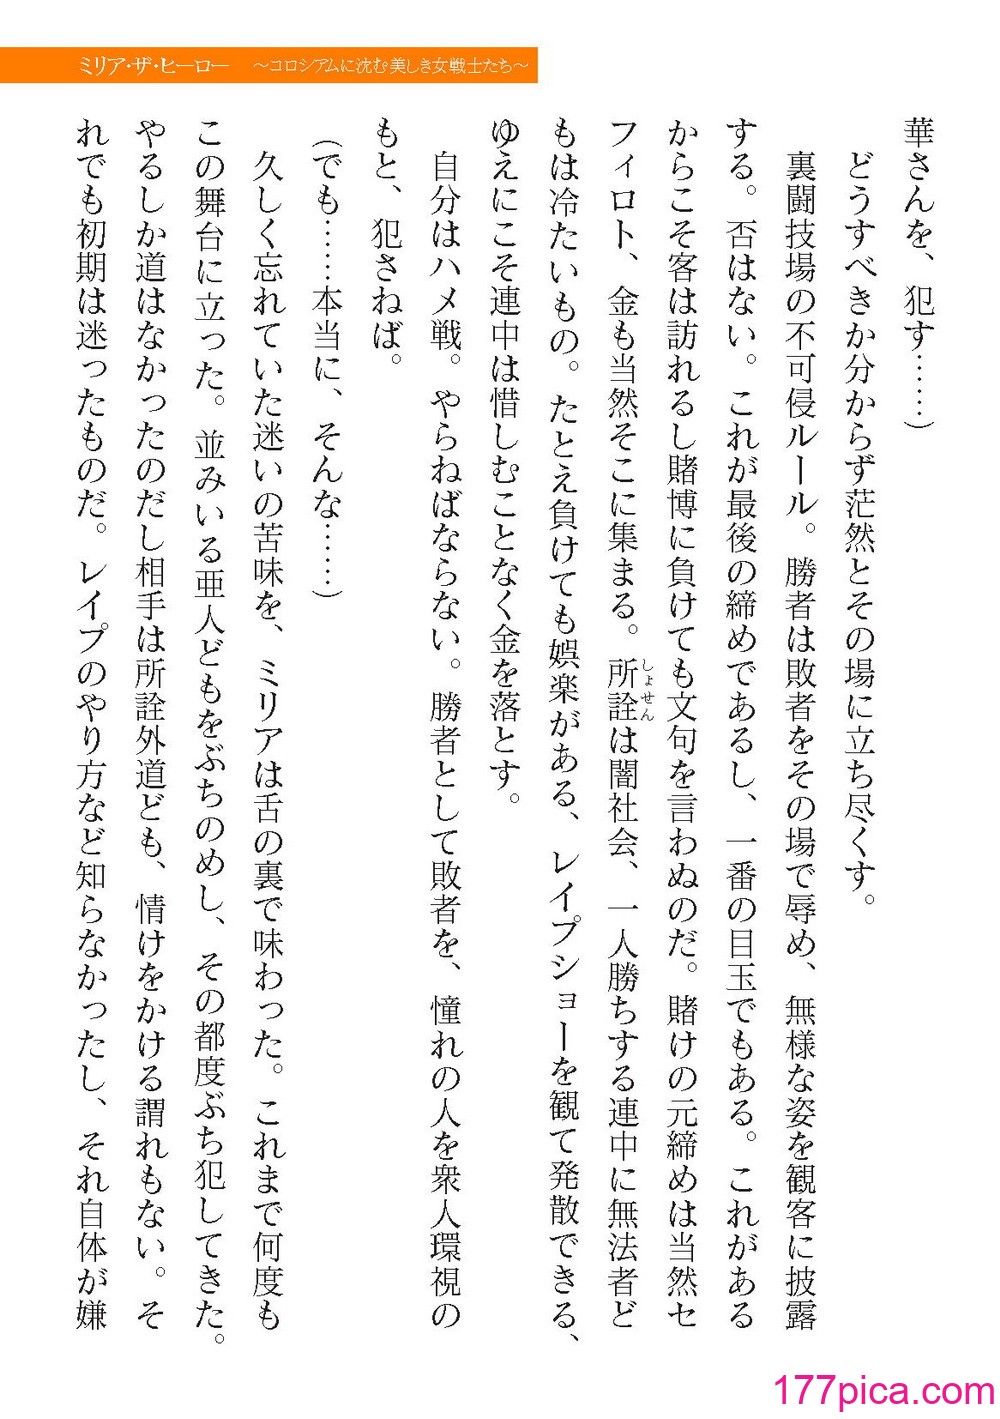 ミリア・ザ・ヒーロー　～コロシアムに沈む美しき女戦士たち～
華さんを、犯す……）
　どうすべきか分からず茫然とその場に立ち尽くす。
　裏闘技場の不可侵ルール。勝者は敗者をその場で辱め、無様な姿を観客に披露
する。否はない。これが最後の締めであるし、一番の目玉でもある。これがある
からこそ客は訪れるし賭博に負けても文句を言わぬのだ。賭けの元締めは当然セ
フィロト、金も当然そこに集まる。所詮は闇社会、一人勝ちする連中に無法者ど
しょせん
もは冷たいもの。たとえ負けても娯楽がある、レイプショーを観て発散できる、
ゆえにこそ連中は惜しむことなく金を落とす。
　自分はハメ戦。やらねばならない。勝者として敗者を、憧れの人を衆人環視の
もと、犯さねば。
（でも……本当に、そんな……）
　久しく忘れていた迷いの苦味を、ミリアは舌の裏で味わった。これまで何度も
この舞台に立った。並みいる亜人どもをぶちのめし、その都度ぶち犯してきた。
やるしか道はなかったのだし相手は所詮外道ども、情けをかける謂れもない。そ
れでも初期は迷ったものだ。レイプのやり方など知らなかったし、それ自体が嫌
177pica.com